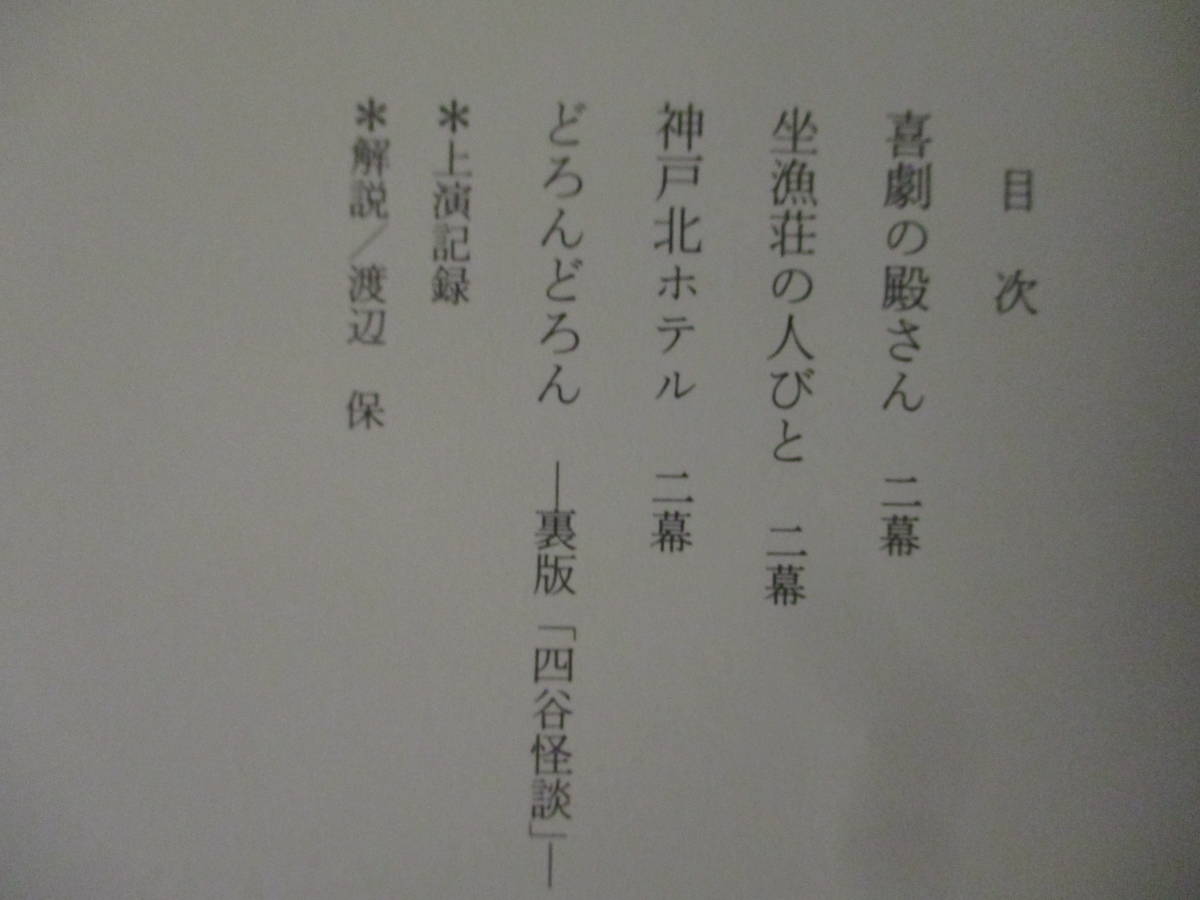 目次
喜劇の殿さん 二幕
坐漁荘の人びと 二幕
神戸北ホテル 二幕
どろんどろん ―裏版「四谷怪談」―
＊上演記録
＊解説／渡辺 保